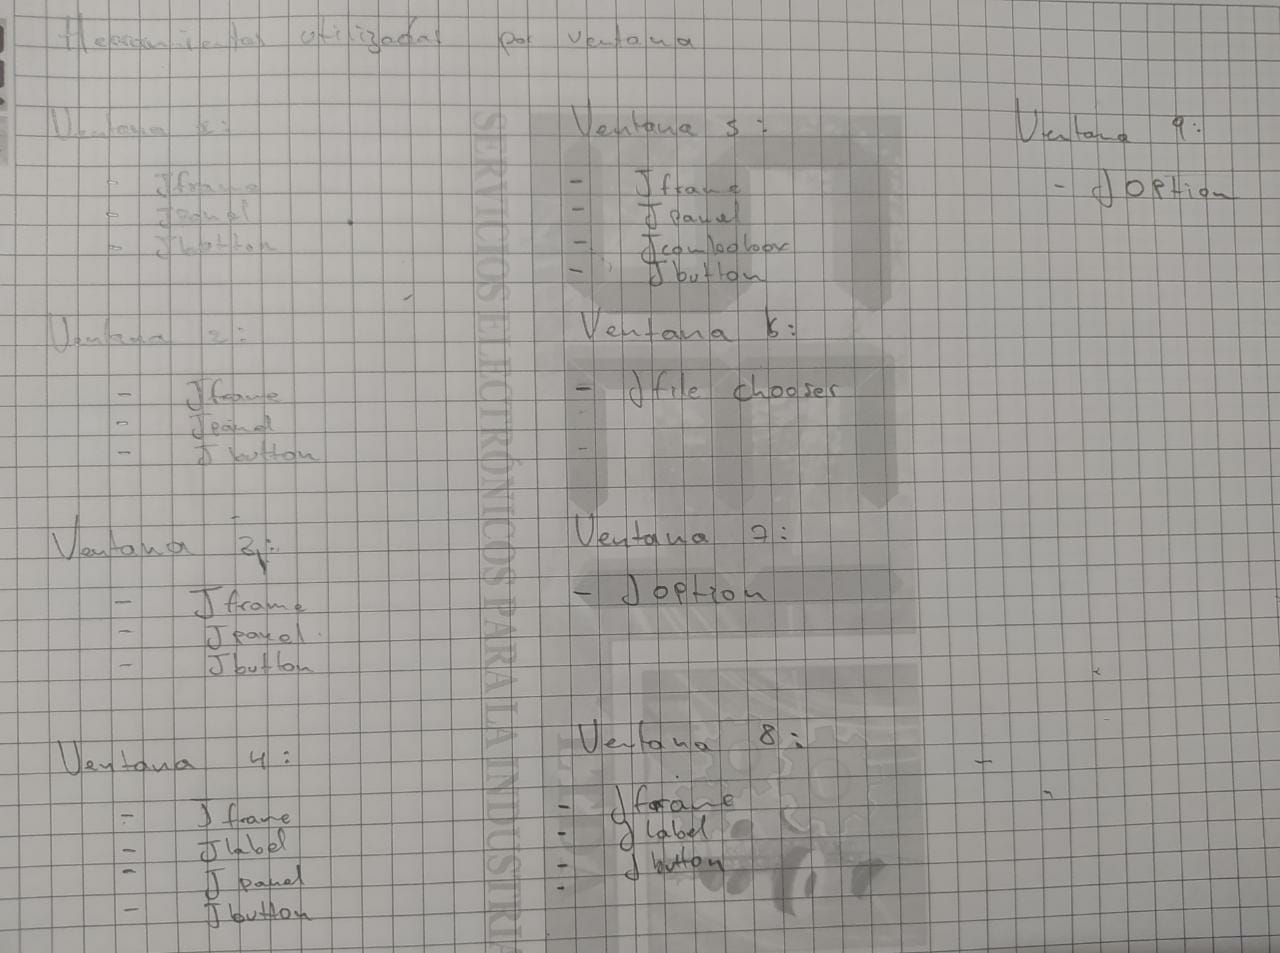 Herramientas utilizadas por ventana
Ventana 1:
- Jframe
- Jpanel
- Jbutton
Ventana 2:
- Jframe
- Jpanel
- Jbutton
Ventana 3:
- Jframe
- Jpanel
- Jbutton
Ventana 4:
- Jframe
- Jlabel
- Jpanel
- Jbutton
Ventana 5:
- Jframe
- Jpanel
- Jcombobox
- Jbutton
Ventana 6:
- Jfile chooser
-
Ventana 7:
- Joption
Ventana 8:
- Jframe
- Jlabel
- Jbutton
-
Ventana 9:
- Joption
SERVICIOS ELECTRÓNICOS PARA LA INDUSTRIA